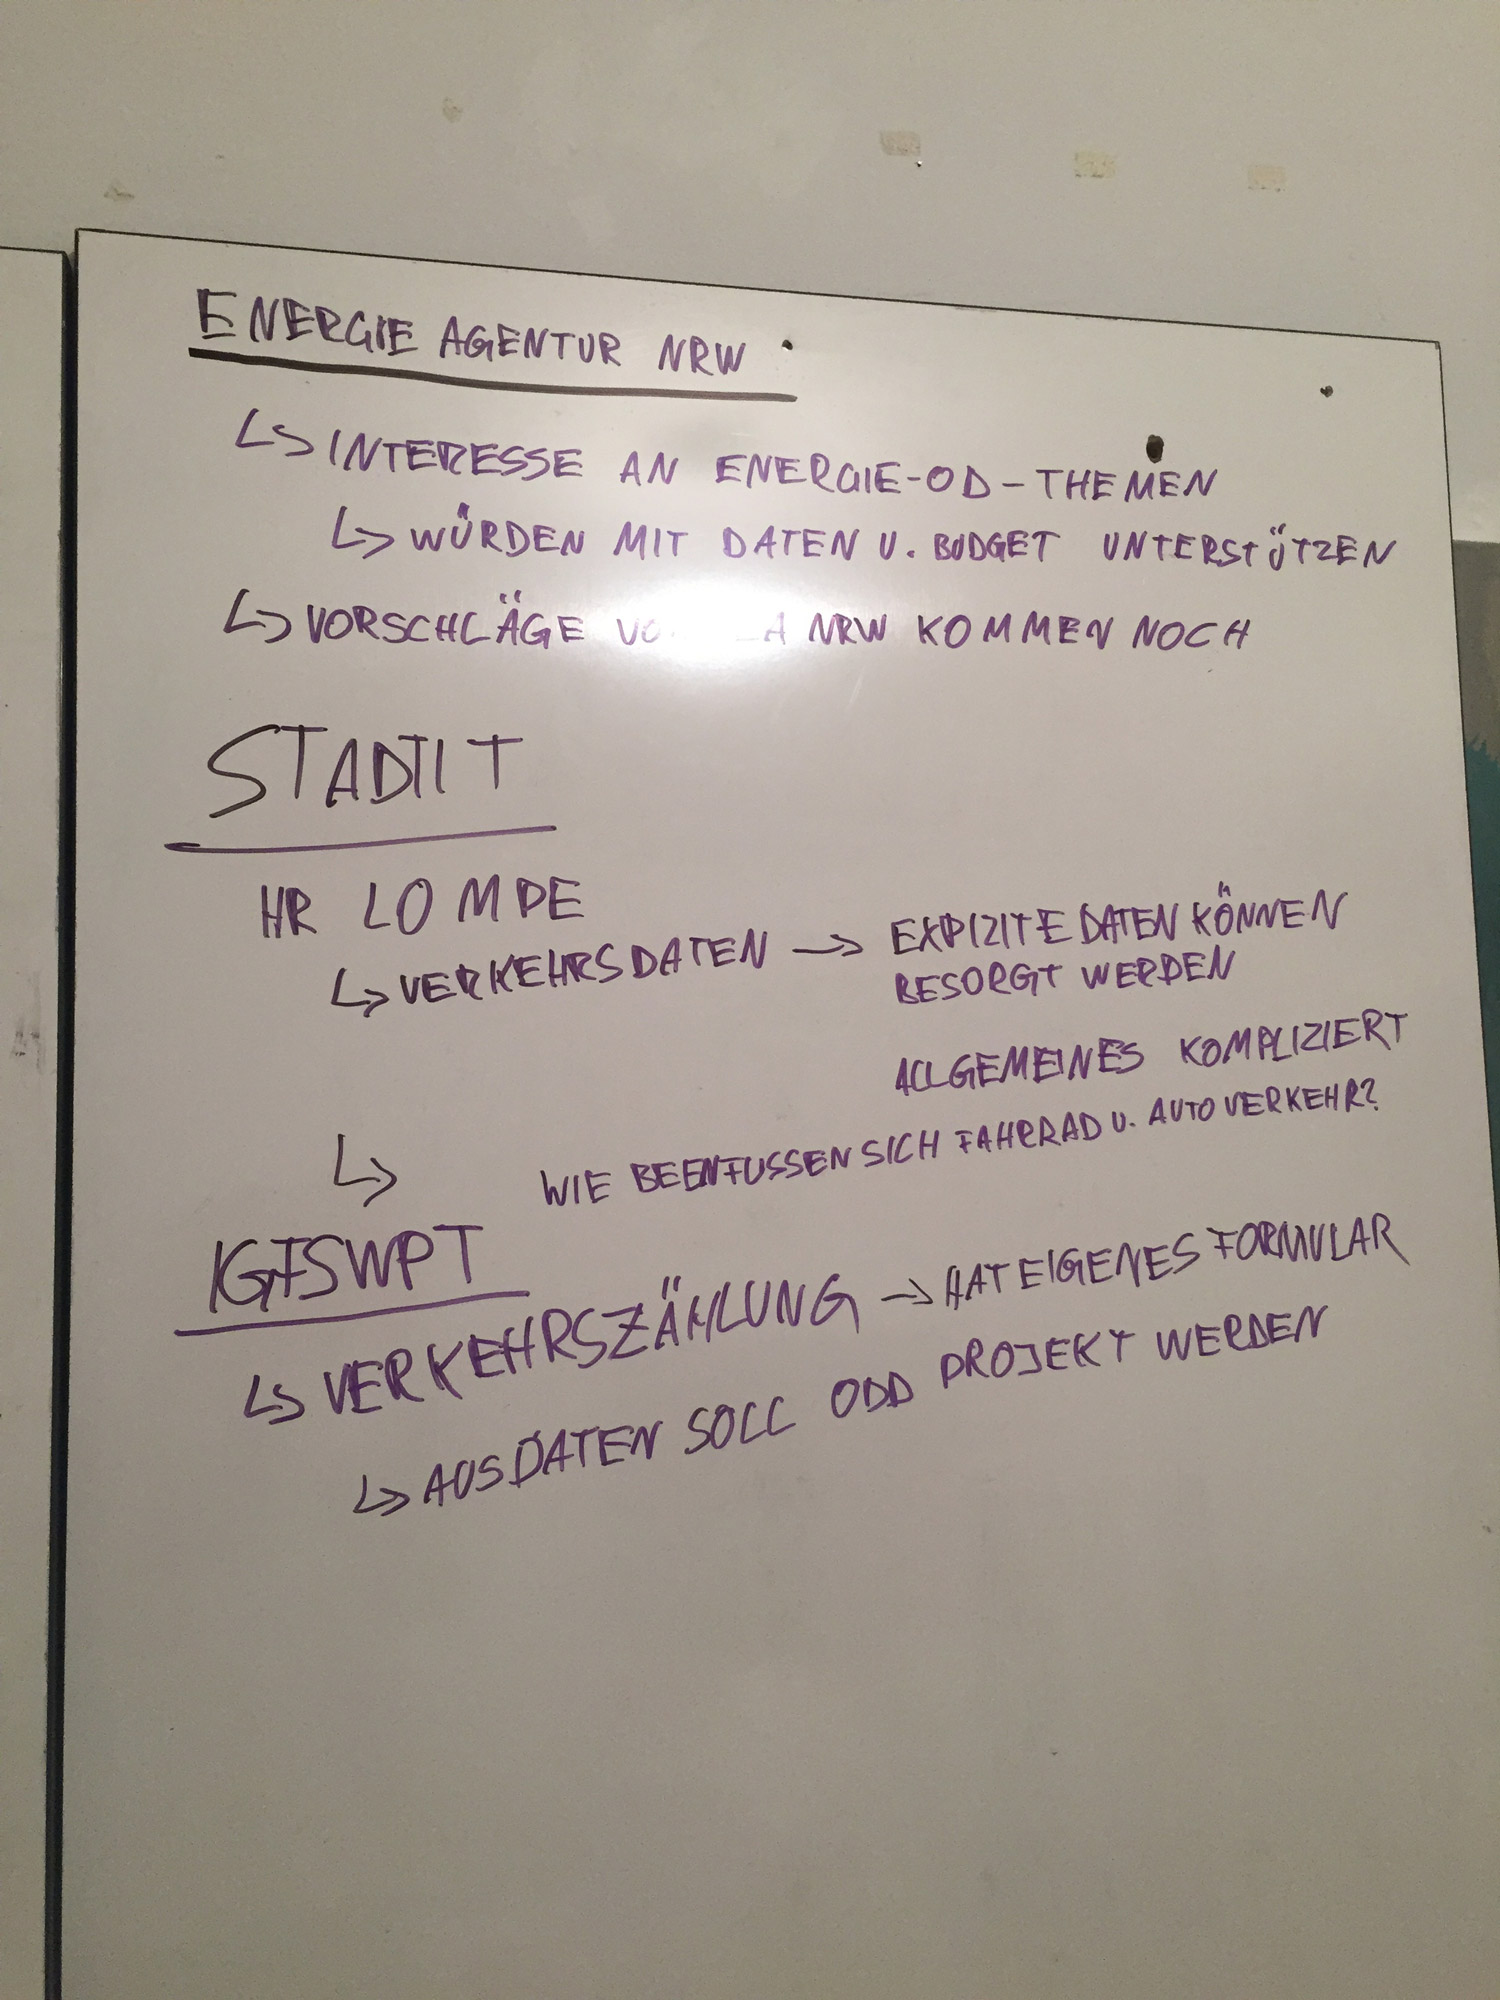 ENERGIE AGENTUR NRW
↳ INTERESSE AN ENERGIE-OD-THEMEN
↳ WÜRDEN MIT DATEN U. BUDGET UNTERSTÜTZEN
↳ VORSCHLÄGE NRW KOMMEN NOCH
STADT IT
HR LOMPE
↳ VERKEHRSDATEN → EXPIZITE DATEN KÖNNEN
BESORGT WERDEN
ALLGEMEINES KOMPLIZIERT
↳ WIE BEENFUSSEN SICH FAHRRAD U. AUTOVERKEHR?
IGFSWPT
↳ VERKEHRSZÄHLUNG → HAT EIGENES FORMULAR
↳ AUS DATEN SOLL ODD PROJEKT WERDEN